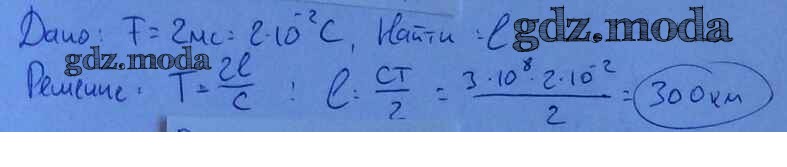 Дано: T = 2мс = 2·10⁻²С, Найти: l gdz.moda
gdz.moda
Решение: T = 2l/c ; l = cT/2 = 3·10⁸·2·10⁻²/2 = 300км